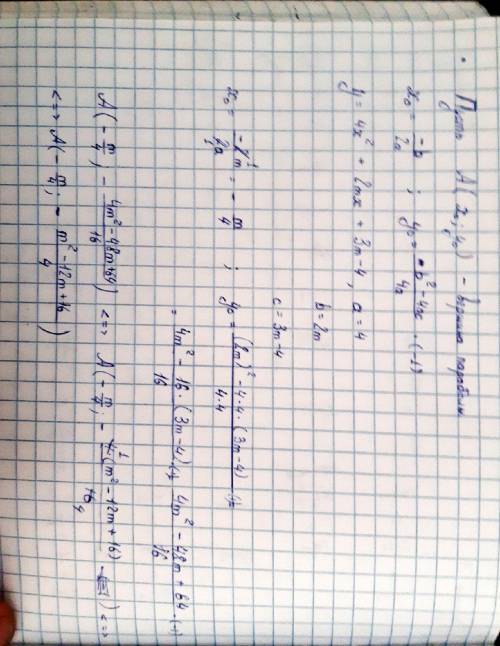 Пусть A(x₀; y₀) - вершина параболы
x₀ = -b/2a ; y₀ = b²-4ac/4a · (-1)
y = 4x² + 2mx + 3m-4, a = 4
b = 2m
c = 3m-4
x₀ = -2m/2a = -m/4 ; y₀ = (2m)² - 4·4·(3m-4)/4·4
= 4m² - 16·(3m-4)/16 · 4m² - 48m + 64/16 · (-1)
A(-m/4) - 4m²-48m+64/16) <=> A(-m/4; - 4(m²-12m+16)/16) <=>
<=> A(-m/4; - m²-12m+16/4)